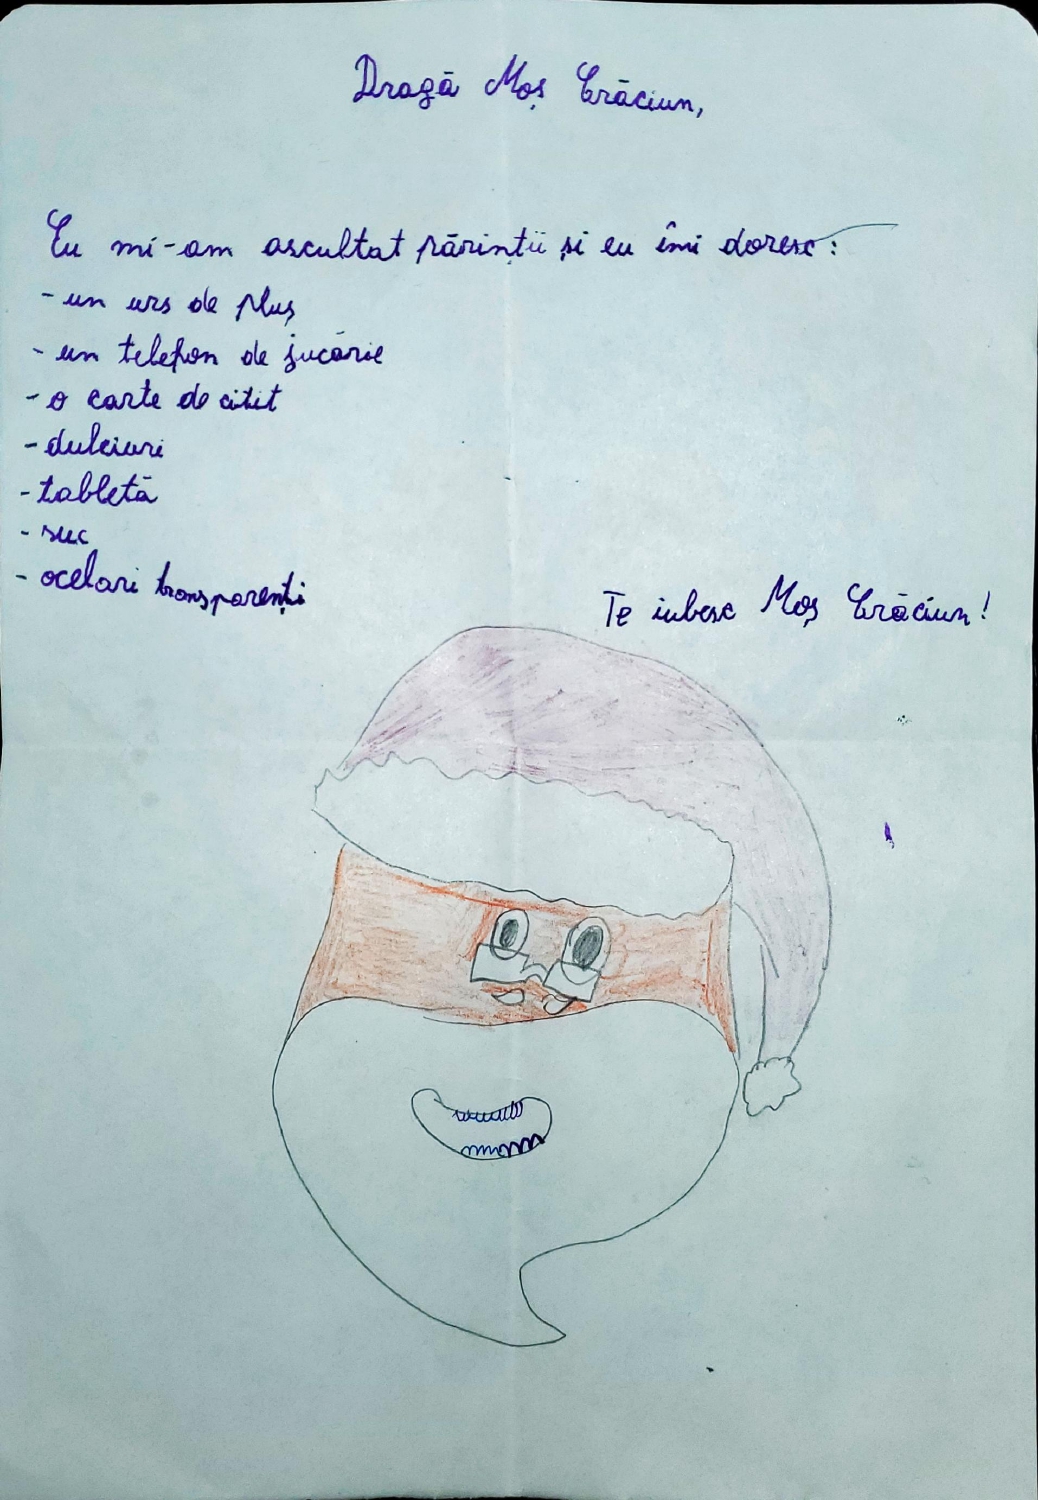 Dragă Moș Crăciun,
Eu mi-am ascultat părinții și eu îmi doresc:
- un urs de pluș
- un telefon de jucărie
- o carte de citit
- dulciuri
- tabletă
- suc
- ocelari transparenți
Te iubesc Moș Crăciun!